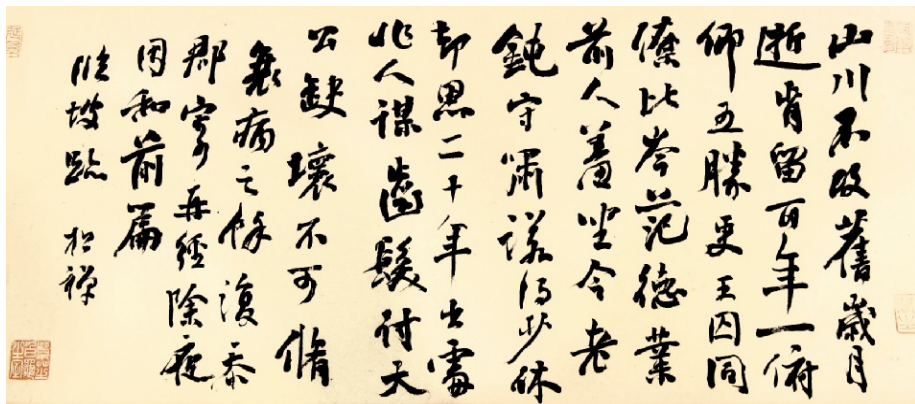 山川不改舊歲月
逝肯留百年一俯
仰五勝更王囚同
僚比岑范德業
前人羞坐令老
鈍守嘯諾得少休
却思二十年出處
非人謀齒髮付天
公缺壞不可脩
衰病之餘復忝
郡寄再經除夜
因和前篇
臨坡跡 松禪